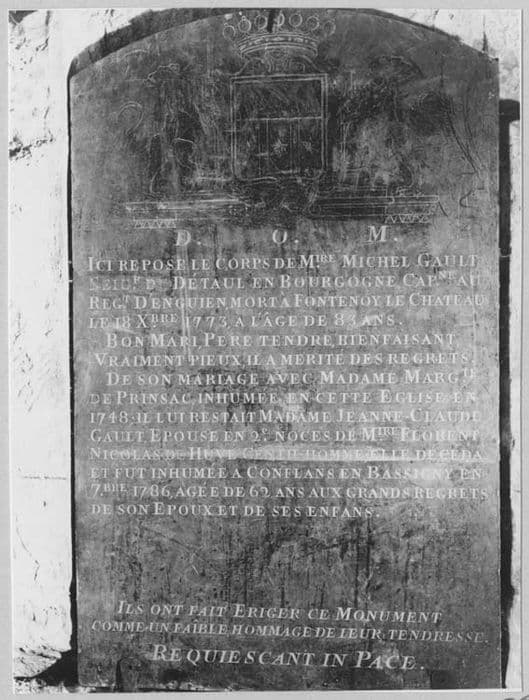 D. O. M.
ICI REPOSE LE CORPS DE MIRE MICHEL GAULT
SEIGR DE DETAUL EN BOURGOGNE CAPNE AU
REGT D'ENGUIEN MORT A FONTENOY LE CHATEAU
LE 18 XBRE 1773, A L'ÂGE DE 83 ANS.
BON MARI, PERE TENDRE, BIENFAISANT
VRAIMENT PIEUX, IL A MERITE DES REGRETS.
DE SON MARIAGE AVEC MADAME MARGTE
DE PRINSAC, INHUMÉE EN CETTE EGLISE EN
1748, IL LUI RESTAIT MADAME JEANNE-CLAUDE
GAULT EPOUSE EN 2E NOCES DE MIRE FLORENT
NICOLAS DE HUVÉ GENTIL-HOMME, ELLE DECEDA
ET FUT INHUMÉE A CONFLANS EN BASSIGNY EN
7BRE 1786, AGÉE DE 62 ANS AUX GRANDS REGRETS
DE SON EPOUX ET DE SES ENFANS.
ILS ONT FAIT ERIGER CE MONUMENT
COMME UN FAÏBLE HOMMAGE DE LEUR TENDRESSE.
REQUIESCANT IN PACE.